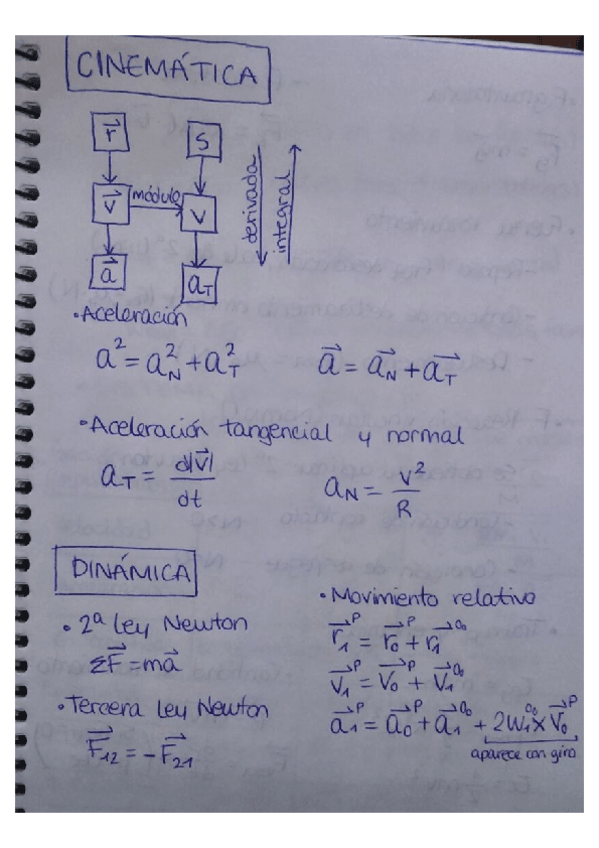 CINEMÁTICA
r⃗ s
v⃗ módulo v
a⃗ a_T
derivada
integral
•Aceleración
a² = a_N² + a_T² a⃗ = a_N⃗ + a_T⃗
•Aceleración tangencial y normal
a_T = d|v⃗|/dt a_N = v²/R
DINÁMICA
• 2ª Ley Newton
ΣF⃗ = ma⃗
•Tercera Ley Newton
F₁₂⃗ = -F₂₁⃗
•Movimiento relativo
r⃗₁ᴾ = r⃗₀ᴾ + r⃗₁^O₀
v⃗₁ᴾ = v⃗₀ᴾ + v⃗₁^O₀
a⃗₁ᴾ = a⃗₀ᴾ + a⃗₁^O₀ + 2w₁^O₀ × v⃗₀ᴾ
aparece con giro